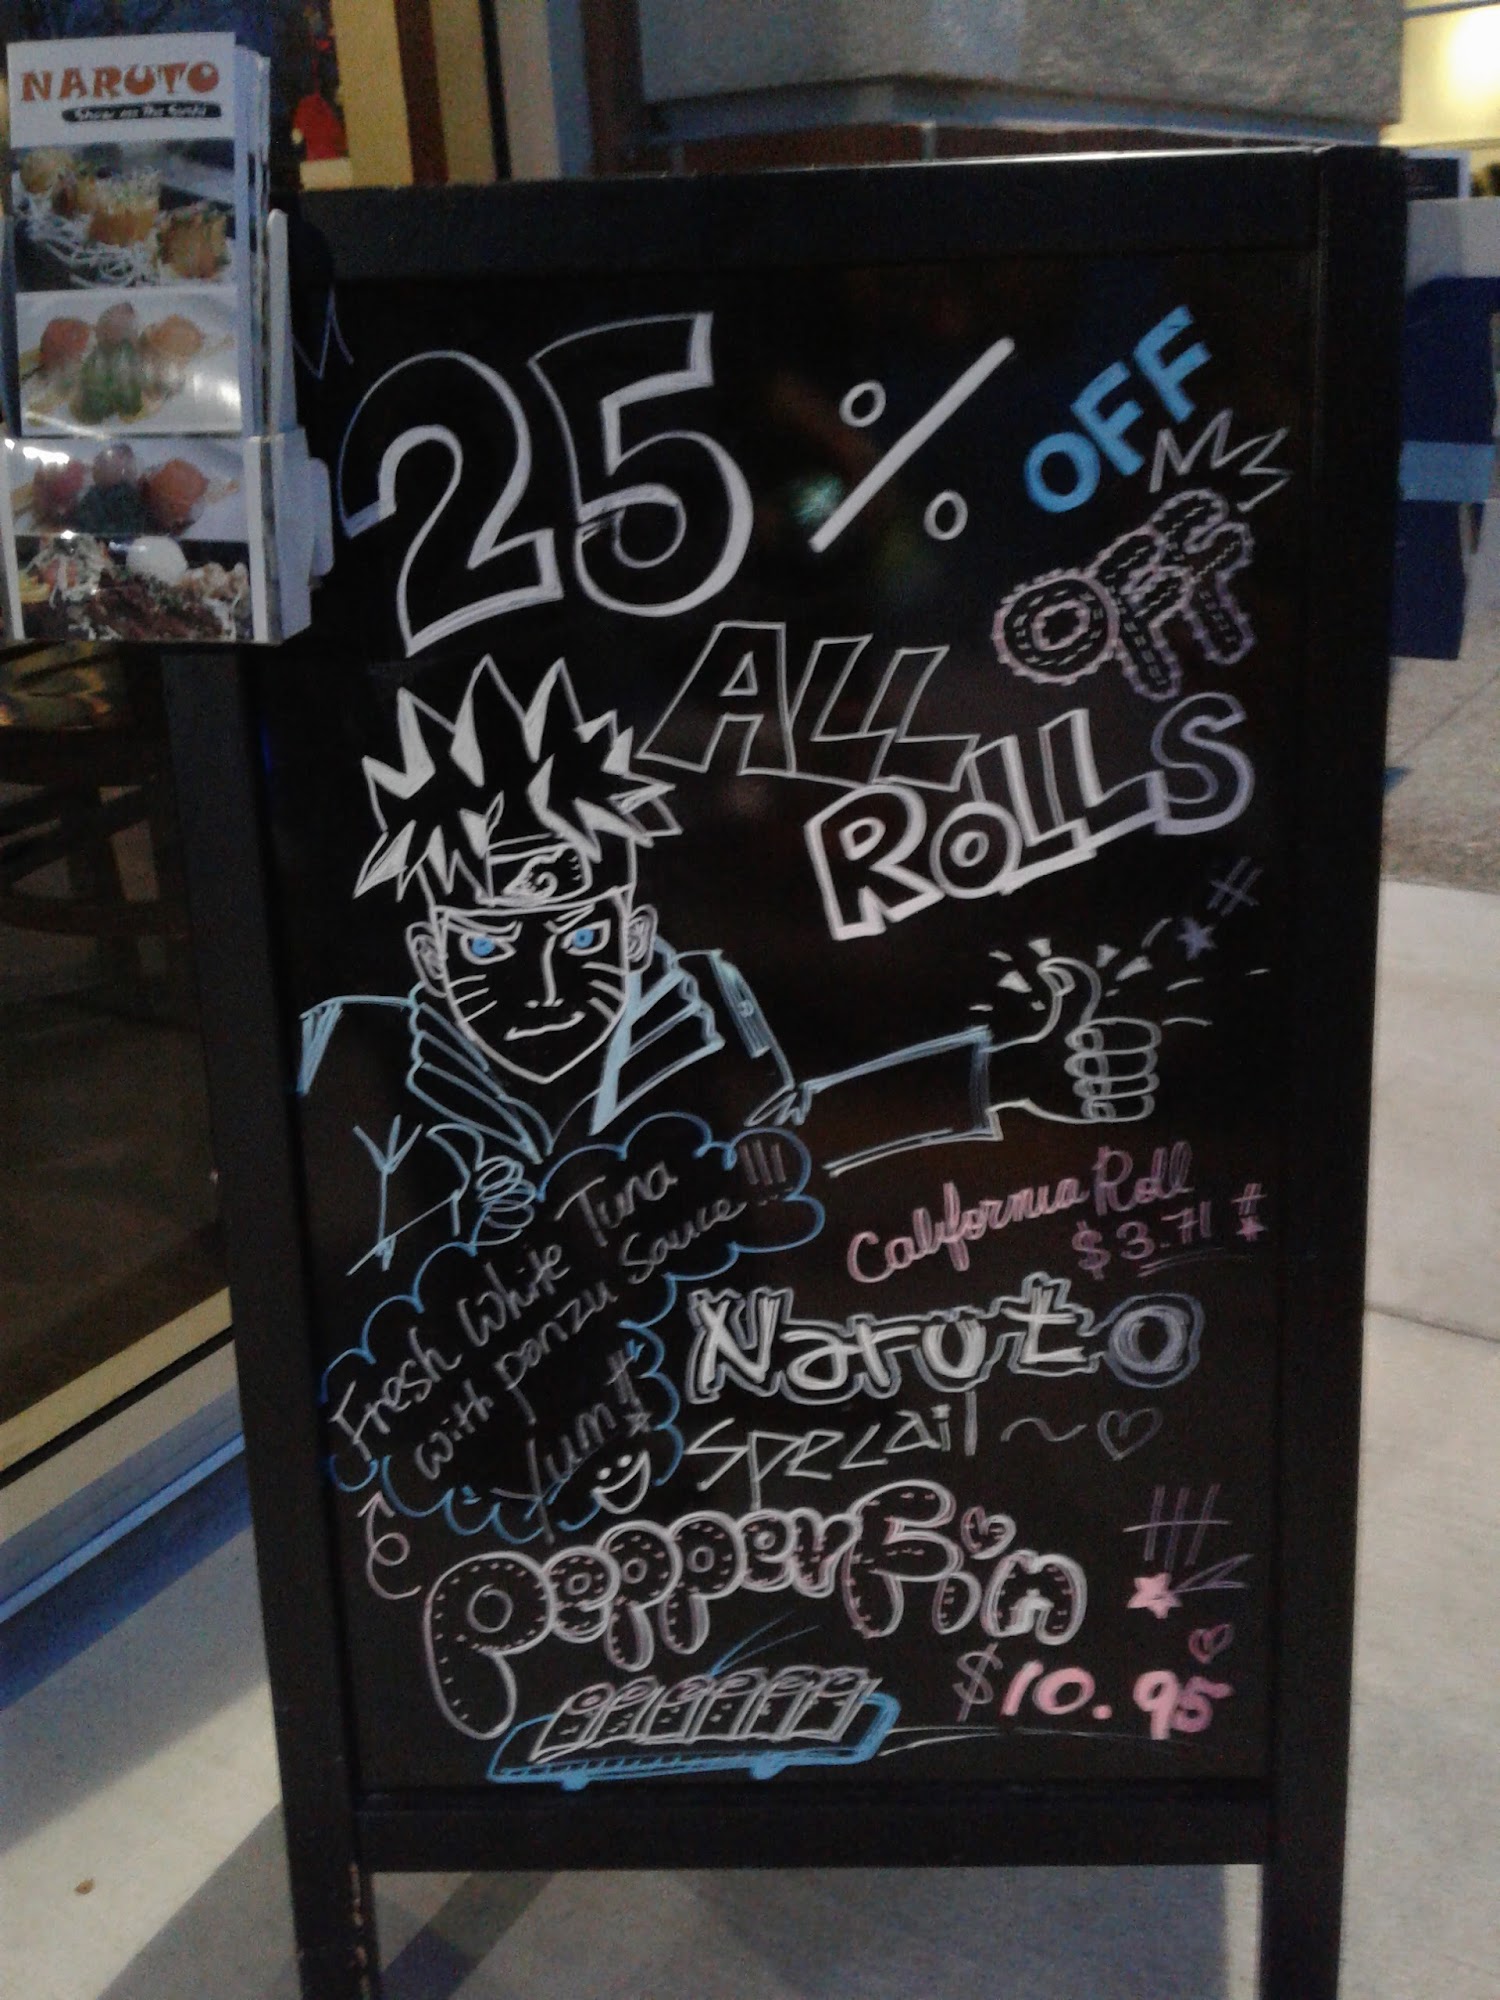 NARUTO
Show me the Sushi
25% OFF
OFF
ALL
ROLLS
California Roll
$3.71
Fresh White Tuna
with ponzu sauce!!!
Yum!!
Naruto
Specail ~
PepperFin
!!!
$10.95